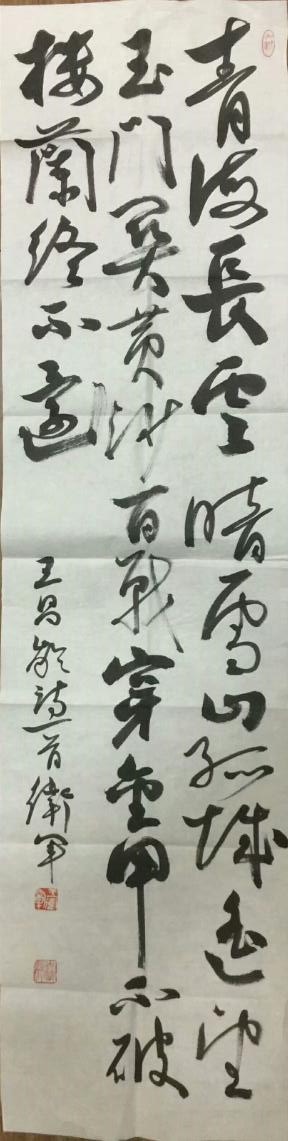 青海長雲暗雪山孤城遥望
玉門關黄沙百戰穿金甲不破
樓蘭終不還
王昌齡詩一首衛軍